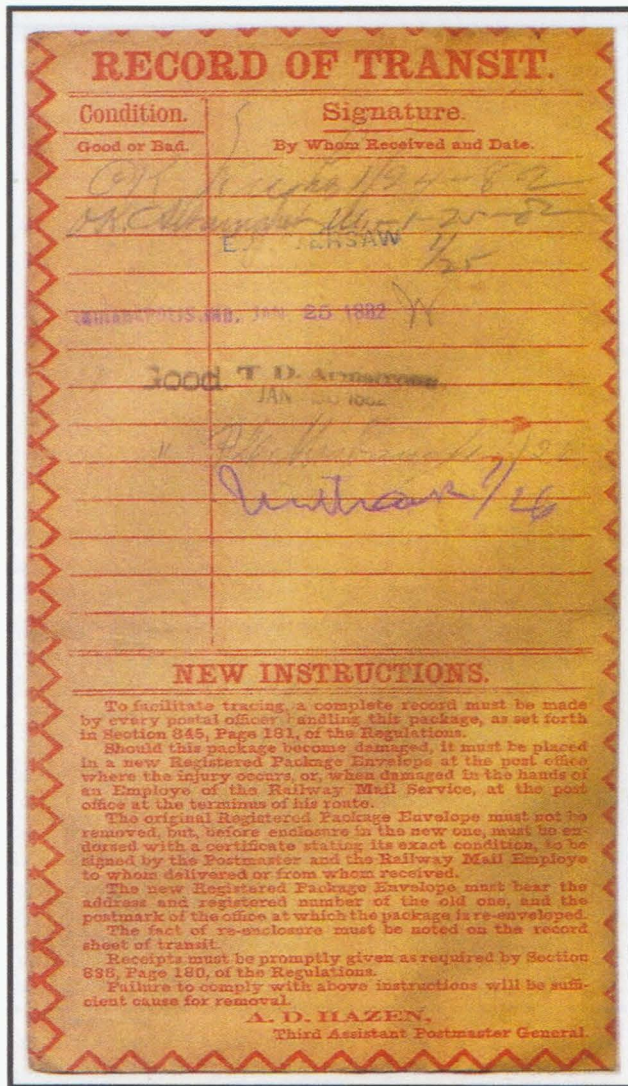 RECORD OF TRANSIT.
Condition. Signature.
Good or Bad. By Whom Received and Date.
OK 1/24-82
OK 1-25-82
WARSAW
1/25
INDIANAPOLIS, IND. JAN 25 1882 W
Good T. D. Armstrong
JAN 1882
"
1/26
NEW INSTRUCTIONS.
To facilitate tracing, a complete record must be made
by every postal officer handling this package, as set forth
in Section 845, Page 181, of the Regulations.
Should this package become damaged, it must be placed
in a new Registered Package Envelope at the post office
where the injury occurs, or, when damaged in the hands of
an Employe of the Railway Mail Service, at the post
office at the terminus of his route.
The original Registered Package Envelope must not be
removed, but, before enclosure in the new one, must be en-
dorsed with a certificate stating its exact condition, to be
signed by the Postmaster and the Railway Mail Employe
to whom delivered or from whom received.
The new Registered Package Envelope must bear the
address and registered number of the old one, and the
postmark of the office at which the package is re-enveloped.
The fact of re-enclosure must be noted on the record
sheet of transit.
Receipts must be promptly given as required by Section
838, Page 180, of the Regulations.
Failure to comply with above instructions will be suffi-
cient cause for removal.
A. D. HAZEN,
Third Assistant Postmaster General.